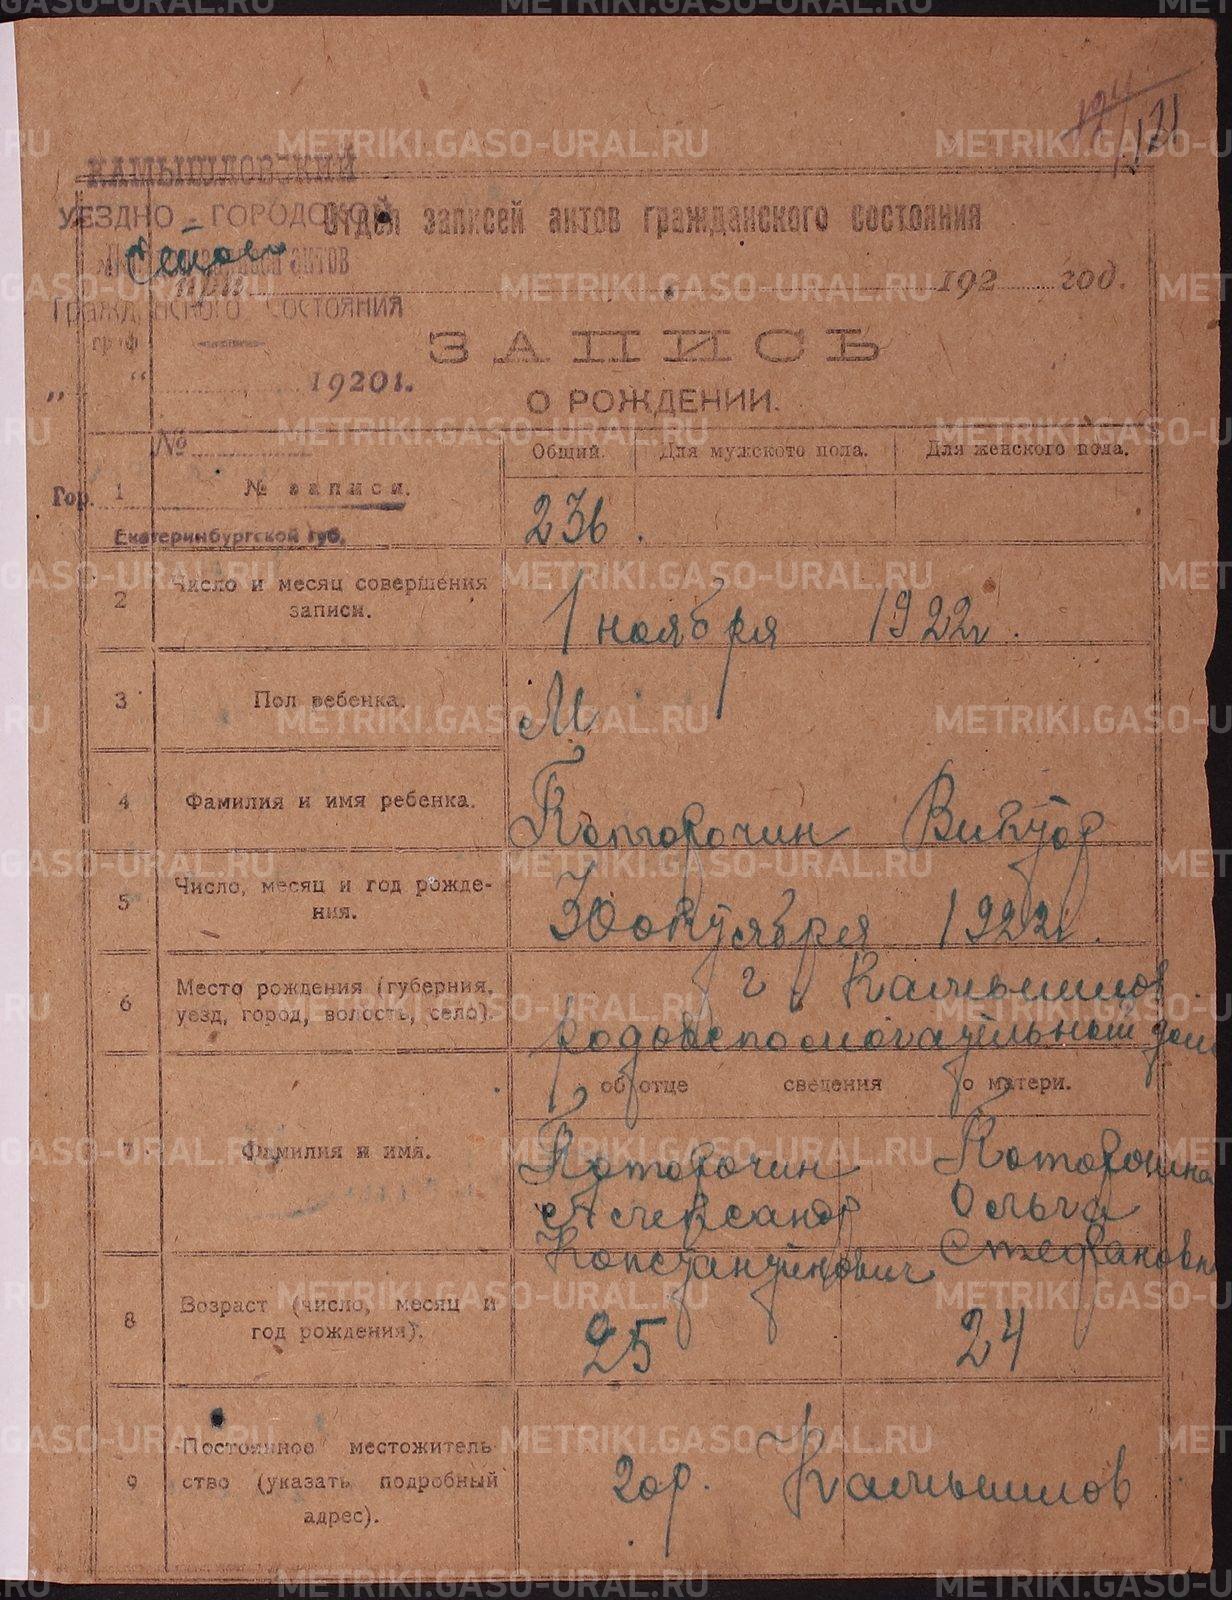 131
КАМЫШЛОВСКИЙ
УЕЗДНО - ГОРОДСКОЙ
Отдел записей актов гражданского состояния
записей актов
при 192 год.
Гражданского состояния
ЗАПИСЬ
" " 1920 г.
О РОЖДЕНИИ.
№
Общий. Для мужского пола. Для женского пола.
Гор.
1 № записи. 236.
Екатеринбургской губ.
2 Число и месяц совершения записи. 1 ноября 1922 г.
3 Пол ребенка. М
4 Фамилия и имя ребенка. Которочин Виктор
5 Число, месяц и год рожде-
ния. 30 октября 1922 г.
6 Место рождения (губерния, г. Камышлов
уезд, город, волость, село). родовспомогательный дом
об отце сведения о матери.
7 Фамилия и имя. Которочин Которочина
Александр Ольга
Константинович Стефановн
8 Возраст (число, месяц и
год рождения). 25 24
9 Постоянное местожитель-
ство (указать подробный гор. Камышлов
адрес).
METRIKI.GASO-URAL.RU